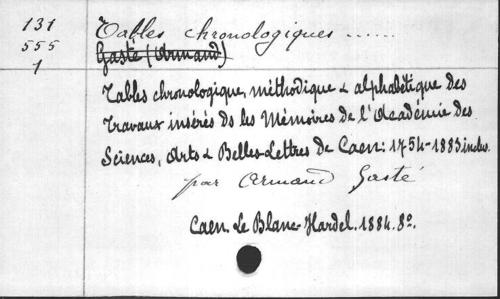 131 Tables chronologiques ......
555 Gasté (Armand)
1
Tables chronologique, méthodique & alphabétique des
Travaux insérés ds les Mémoires de l'Académie des
Sciences, Arts & Belles-Lettres de Caen: 1754-1883 inclus.
par Armand Gasté
Caen. Le Blanc-Hardel. 1884. 8º.